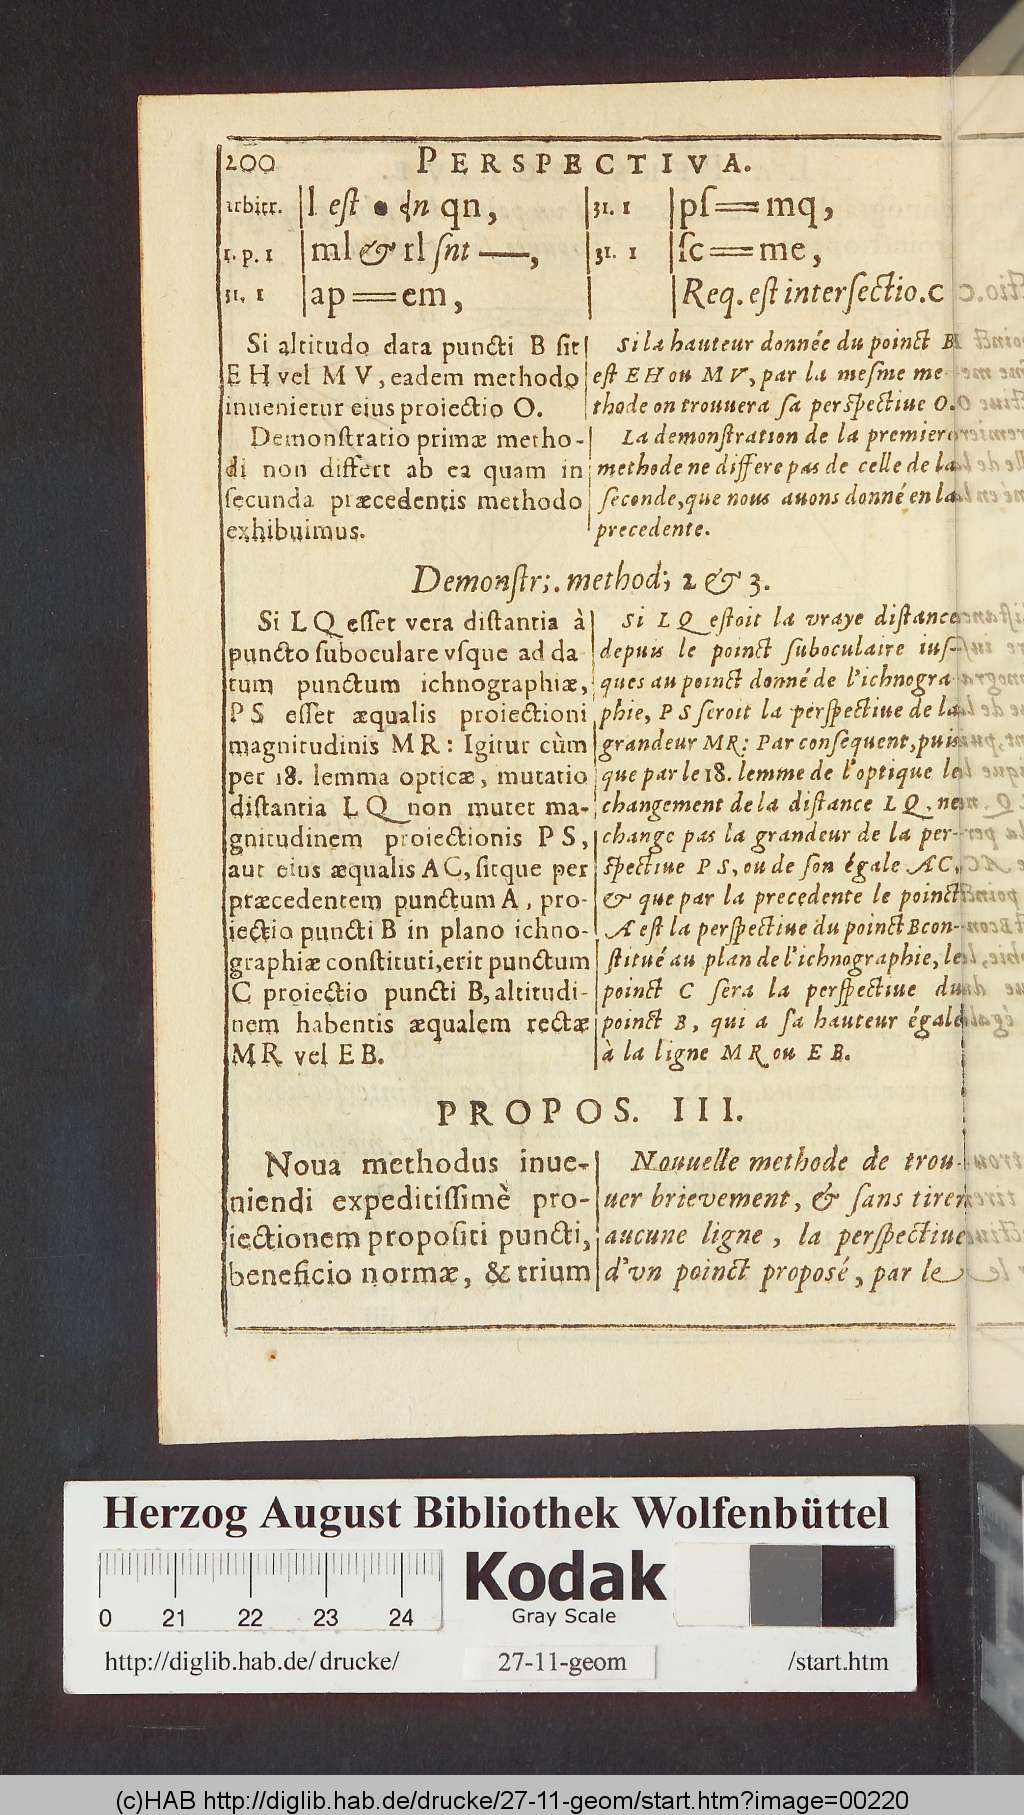 200 PERSPECTIVA.
arbitr. l est • ɖn qn,
1. p. 1 ml & rl ſnt —,
31. 1 ap = em,
31. 1 pſ = mq,
31. 1 ſc = me,
Req. eſt interſectio. c
Si altitudo data puncti B ſit
E H vel M V, eadem methodo
inuenietur eius proiectio O.
Demonſtratio primæ metho-
di non differt ab ea quam in
ſecunda præcedentis methodo
exhibuimus.
Si la hauteur donnée du poinct B
eſt E H ou M V, par la meſme me-
thode on trouuera ſa perſpectiue O.
La demonſtration de la premiere
methode ne differe pas de celle de la
ſeconde, que nous auons donné en la
precedente.
Demonſtr;. method; 2 & 3.
Si L Q eſſet vera diſtantia à
puncto ſuboculare vſque ad da
tum punctum ichnographiæ,
P S eſſet æqualis proiectioni
magnitudinis M R: Igitur cùm
per 18. lemma opticæ, mutatio
diſtantia L Q non mutet ma-
gnitudinem proiectionis P S,
aut eius æqualis A C, ſitque per
præcedentem punctum A, pro-
iectio puncti B in plano ichno-
graphiæ conſtituti, erit punctum
C proiectio puncti B, altitudi-
nem habentis æqualem rectæ
M R vel E B.
Si L Q eſtoit la vraye diſtance
depuis le poinct ſuboculaire iuſ-
ques au poinct donné de l'ichnogra-
phie, P S ſeroit la perſpectiue de la
grandeur M R: Par conſequent, puis
que par le 18. lemme de l'optique le
changement de la diſtance L Q, ne
change pas la grandeur de la per-
ſpectiue P S, ou de ſon égale A C,
& que par la precedente le poinct
A eſt la perſpectiue du poinct B con-
ſtitué au plan de l'ichnographie, le
poinct C ſera la perſpectiue du
poinct B, qui a ſa hauteur égale
à la ligne M R ou E B.
PROPOS. III.
Noua methodus inue-
niendi expeditiſſimè pro-
iectionem propoſiti puncti,
beneficio normæ, & trium
Nouuelle methode de trou-
uer brievement, & ſans tirer
aucune ligne, la perſpectiue
d'vn poinct propoſé, par le
Herzog August Bibliothek Wolfenbüttel
0 21 22 23 24
Kodak
Gray Scale
http://diglib.hab.de/drucke/ 27-11-geom /start.htm
(c)HAB http://diglib.hab.de/drucke/27-11-geom/start.htm?image=00220